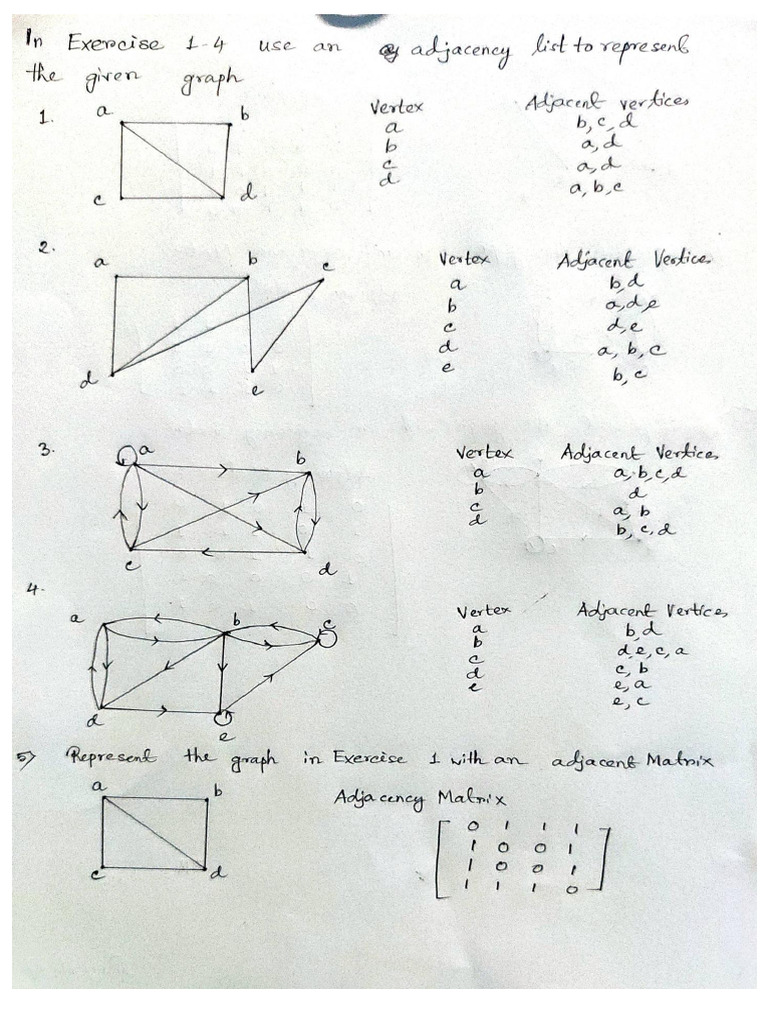 In Exercise 1-4 use an adjacency list to represent
the given graph
1. a b Vertex Adjacent vertices
a b, c, d
b a, d
c a, d
c d d a, b, c
2. a b c Vertex Adjacent Vertices
a b, d
b a, d, e
c d, e
d d a, b, c
e e b, c
3. a b Vertex Adjacent Vertices
a a, b, c, d
b d
c a, b
d b, c, d
c d
4. a b c Vertex Adjacent Vertices
a b, d
b d, e, c, a
c c, b
d e, a
d e e e, c
5) Represent the graph in Exercise 1 with an adjacent Matrix
a b Adjacency Matrix
0 1 1 1
1 0 0 1
1 0 0 1
c d 1 1 1 0